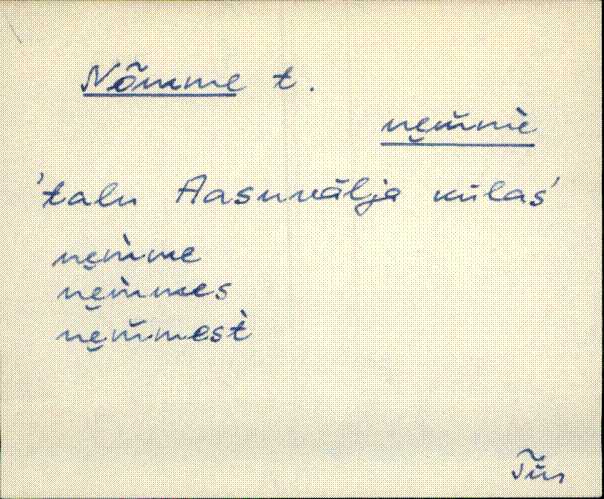 Nõmme t.
ne̮m̆mè
'talu Aasuvälja külas'
ne̮m̀me
ne̮m̀mes
ne̮m̆mest̀
Tür